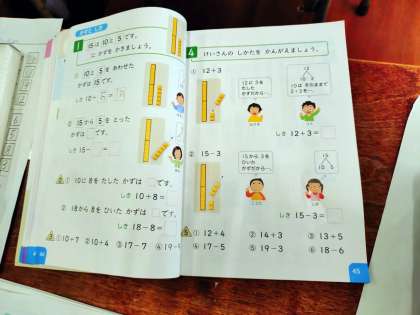 かずと しき
1
15は 10と 5です。
□に かずを かきましょう。
① 10と 5を あわせた
かずは 15です。
しき 10+
② 15から 5を とった
かずは □です。
しき 15-□=□
① 10に 8を たした かずは □です。
しき 10+8=□
② 18から 8を ひいた かずは □です。
しき 18-8=□
①10+7 ②10+4 ③17-7 ④19-9
44
4 けいさんの しかたを かんがえましょう。
① 12+3
12に 3を
たした
かずだから…
12+3
10は そのままで
2+3を…
しき 12+3=□
② 15-3
15から 3を
ひいた
かずだから…
15
10 5
しき 15-3=□
5 ① 12+4 ② 14+3 ③ 13+5
④ 17-5 ⑤ 19-3 ⑥ 18-6
45